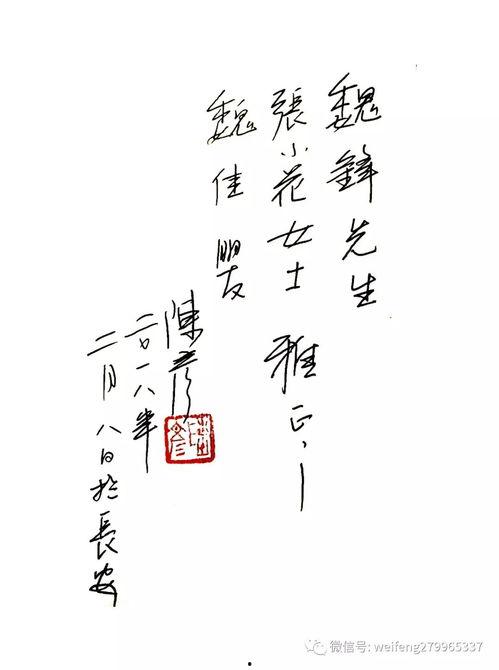 魏鋒先生
張小花女士 雅正！
魏佳朋友
陳彦
二〇一八年
二月八日於長安
微信号: weifeng279965337